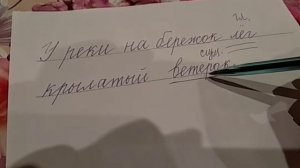 гл.
У реки на бережок лёг
сущ.
крылатый ветерок